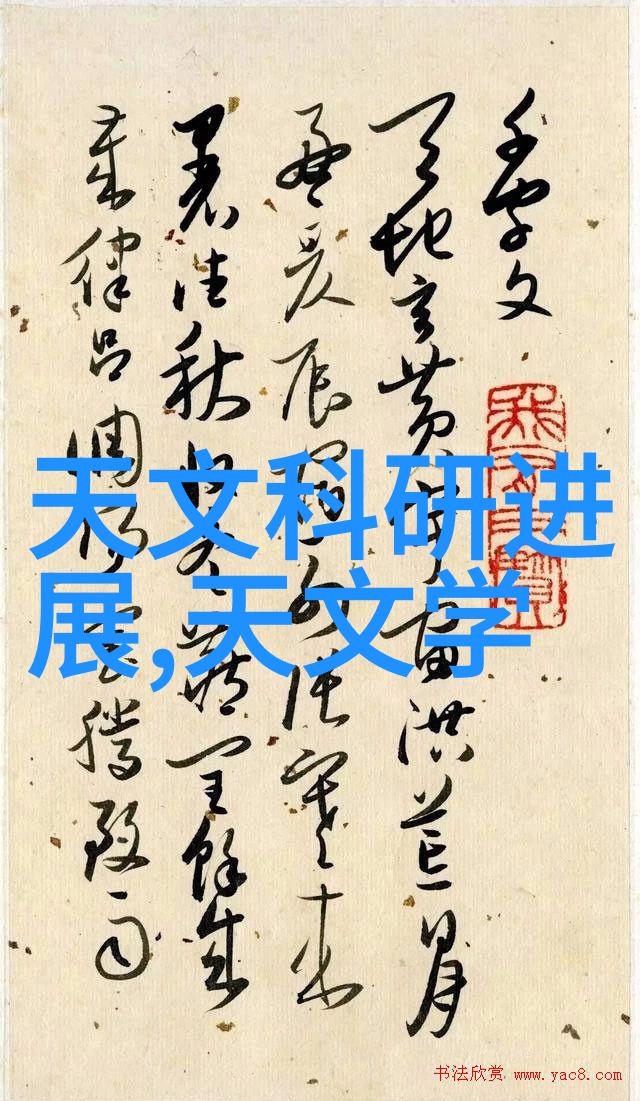 千字文
天地玄黄宇宙洪荒日月
盈昃辰宿列張寒来
暑往秋收冬藏閏餘成
歲律吕調陽雲騰致雨
天文科研进
展,天文学
书法欣赏 www.yac8.com